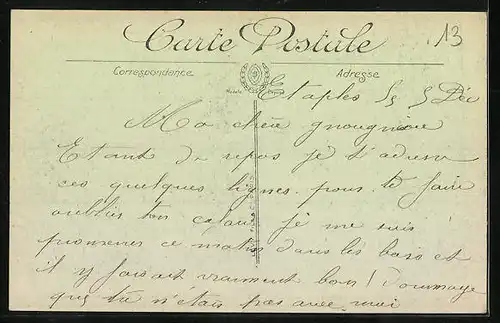 Carte Postale
13
Correspondence
Adresse
Etaples 5 Déc
Ma chère
Etant de repos je t'adresse
ces quelques lignes pour te faire
oublier ton cafard je me suis
promener ce matin dans les bois et
il y faisait vraiment bon! Dommage
que tu n'étais pas avec moi